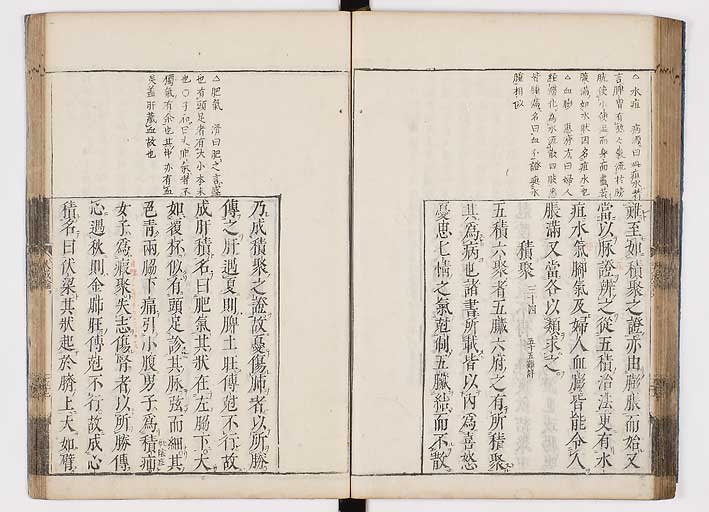 △水疸 病源曰此疸水者
言脾胃有熱之氣流於膀
胱使小便澁而身面盡黃
腹滿如水狀因多疸水也
△血膨 惠濟方曰婦人
經滯化為水流散四肢悉
皆腫滿名曰血分證與水
腫相似
難至如積聚之證亦由膨脹而始又
當以脉證辨之從五積治法更有水
疸水氣脚氣及婦人血膨皆能令人
脹滿又當各以類求之
積聚 三十四
五積六聚者五臟六府之有所積聚
其為病也諸書所載皆以內為喜怒
憂思七情之氣尅制五臟結而不散
△肥氣 滑曰肥之言盛
也有頭足者有大小本末
也○丁 曰大肥氣者不
獨氣有余也其中亦有血
矣盖肝藏血故也
乃成積聚之證故憂傷肺者以所勝
傳之肝遇夏則脾土旺傳尅不行故
成肝積名曰肥氣其狀在左脇下大
如覆杯似有頭足診其脉弦而細其
色青兩脇下痛引小腹男子為積疝
女子為瘕聚失志傷腎者以所勝傳
心遇秋則金肺旺傳尅不行故成心
積名曰伏梁其狀起於臍上大如臂